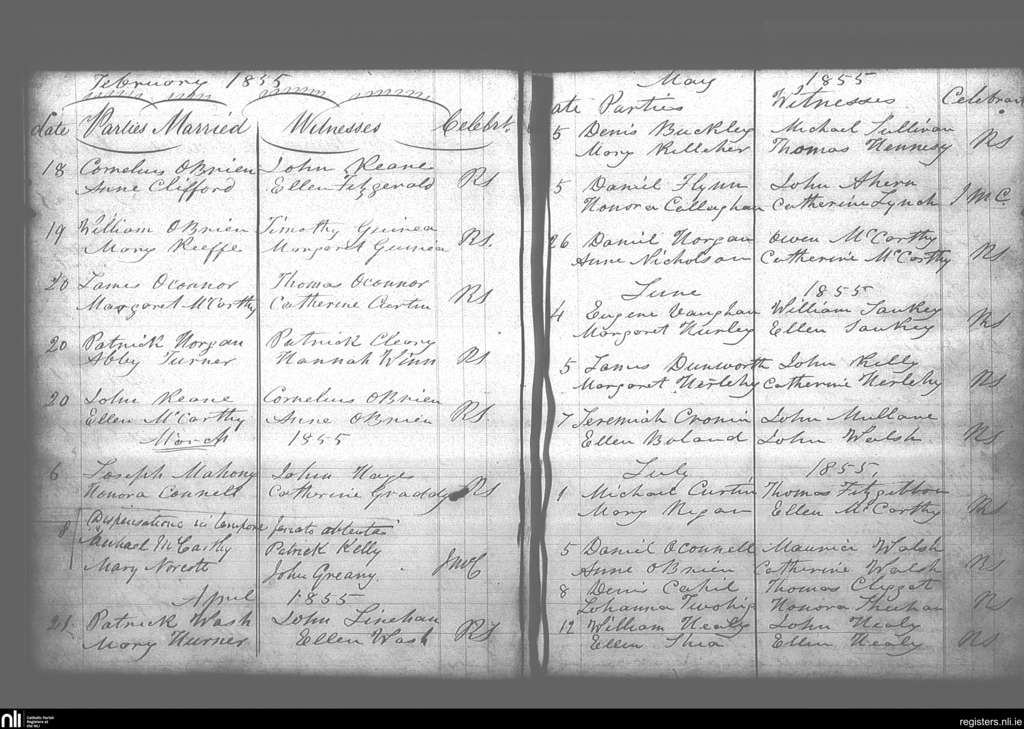 February 1855
date Parties Married Witnesses Celebrt.
18 Cornelius OBrien John Keane RS
Anne Clifford Ellen Fitzgerald
19 William OBrien Timothy Guinea RS.
Mary Keeffe Margaret Guinea
20 James Oconnor Thomas Oconnor RS
Margaret McCarthy Catherine Curtin
20 Patrick Horgan Patrick Cleary RS
Abby Turner Hannah Winn
20 John Keane Cornelius OBrien RS
Ellen McCarthy Anne OBrien
March 1855
6 Joseph Mahony John Hayes RS
Honora Connell Catherine Graddy
Dispensatione in tempore feriato obtenta
8 Michael McCarthy Patrick Kelly JMcC
Mary Norcott John Greany.
April 1855
21 Patrick Wash John Linehan RS
Mary Hurner Ellen Wash
May 1855
ate Parties Witnesses Celebrant
5 Denis Buckley Michael Sullivan RS
Mary Kelleher Thomas Hennesy
5 Daniel Flynn John Ahern J McC.
Honora Callaghan Catherine Lynch
26 Daniel Horgan Owen McCarthy RS
Anne Nicholson Catherine McCarthy
June 1855
4 Eugene Vaughan William Sankey RS
Margaret Hurley Ellen Sankey
5 James Dunworth John Kelly RS
Margaret Herlehy Catherine Herlehy
7 Jeremiah Cronin John Mullane RS
Ellen Boland John Walsh
July 1855.
1 Michael Curtin Thomas Fitzgibbon RS
Mary Regan Ellen McCarthy
5 Daniel Oconnell Maurice Walsh RS
Anne OBrien Catherine Walsh
8 Denis Cahil Thomas RS
Johanna Twohig Honora Sheehan
12 William Healy John Healy RS
Ellen Shea Ellen Healy
nli Catholic Parish Registers at the NLI
registers.nli.ie